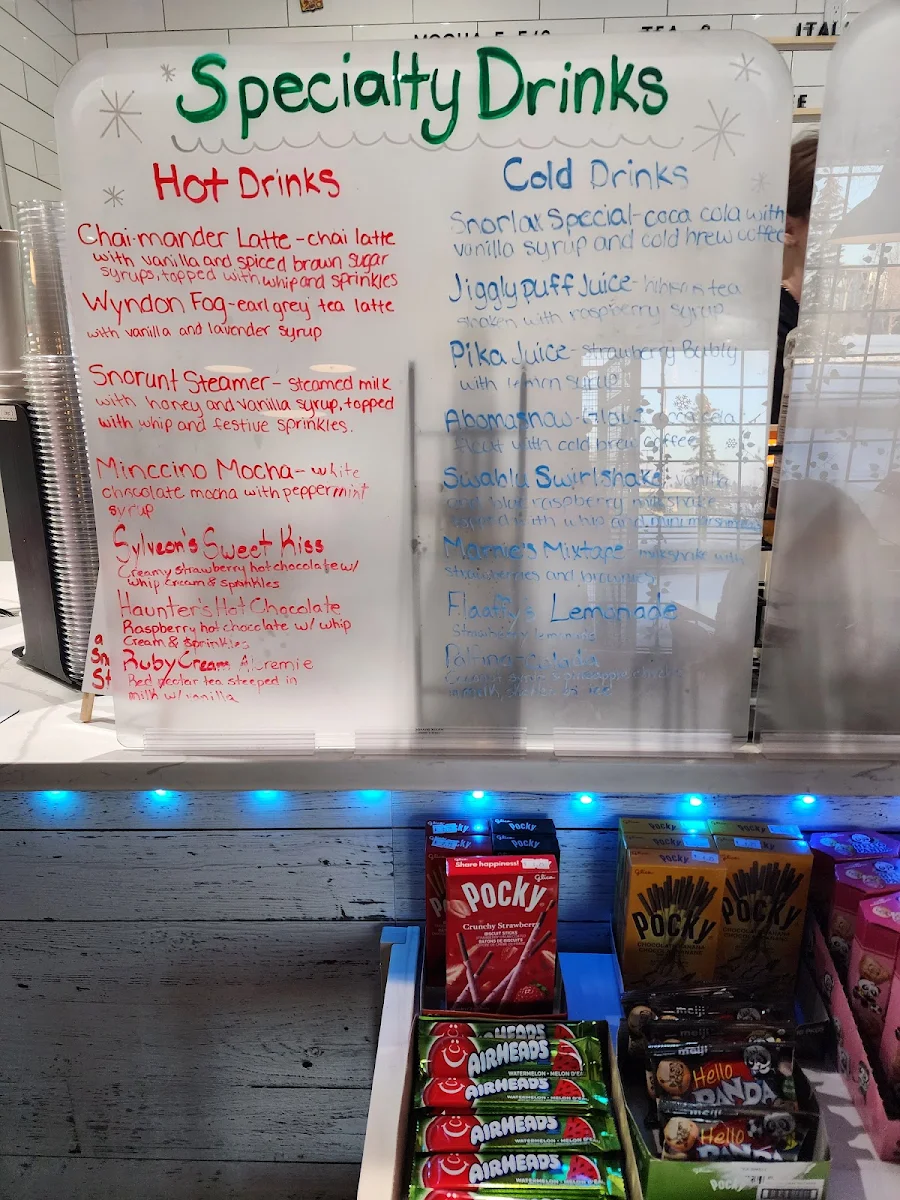 Specialty Drinks
Hot Drinks
Chai-mander Latte - chai latte
with vanilla and spiced brown sugar
syrups, topped with whip and sprinkles
Wyndon Fog - earl grey tea latte
with vanilla and lavender syrup
Snorunt Steamer - steamed milk
with honey and vanilla syrup, topped
with whip and festive sprinkles.
Minccino Mocha - white
chocolate mocha with peppermint
syrup
Sylveon's Sweet Kiss
Creamy strawberry hot chocolate w/
whip cream & sprinkles
Haunter's Hot Chocolate
Raspberry hot chocolate w/ whip
Cream & Sprinkles
Ruby Cream Alcremie
Red nectar tea steeped in
milk w/ vanilla
Cold Drinks
Snorlax Special - coca cola with
vanilla syrup and cold brew coffee
Jigglypuff Juice - hibiscus tea
shaken with raspberry syrup
Pika Juice - strawberry Bubly
with lemon syrup
Abomasnow
float with cold brew coffee
Swablu Swirlshake - vanilla
and blue raspberry milkshake
topped with whip and mini marshmallows
Marnie's Mixtape - milkshake with
strawberries and brownies
Flaaffy's Lemonade
Strawberry lemonade
TEA &
Share happiness!
Glico
POCKY
Crunchy Strawberry
BISCUIT STICKS
POCKY
POCKY
POCKY
POCKY
POCKY
POCKY
CHOCOLATE BANANA
POCKY
CHOCOLATE BANANA
AIRHEADS
AIRHEADS
WATERMELON
AIRHEADS
AIRHEADS
AIRHEADS
AIRHEADS
meiji
meiji
meiji
Hello
PANDA
meiji
Hello
PANDA